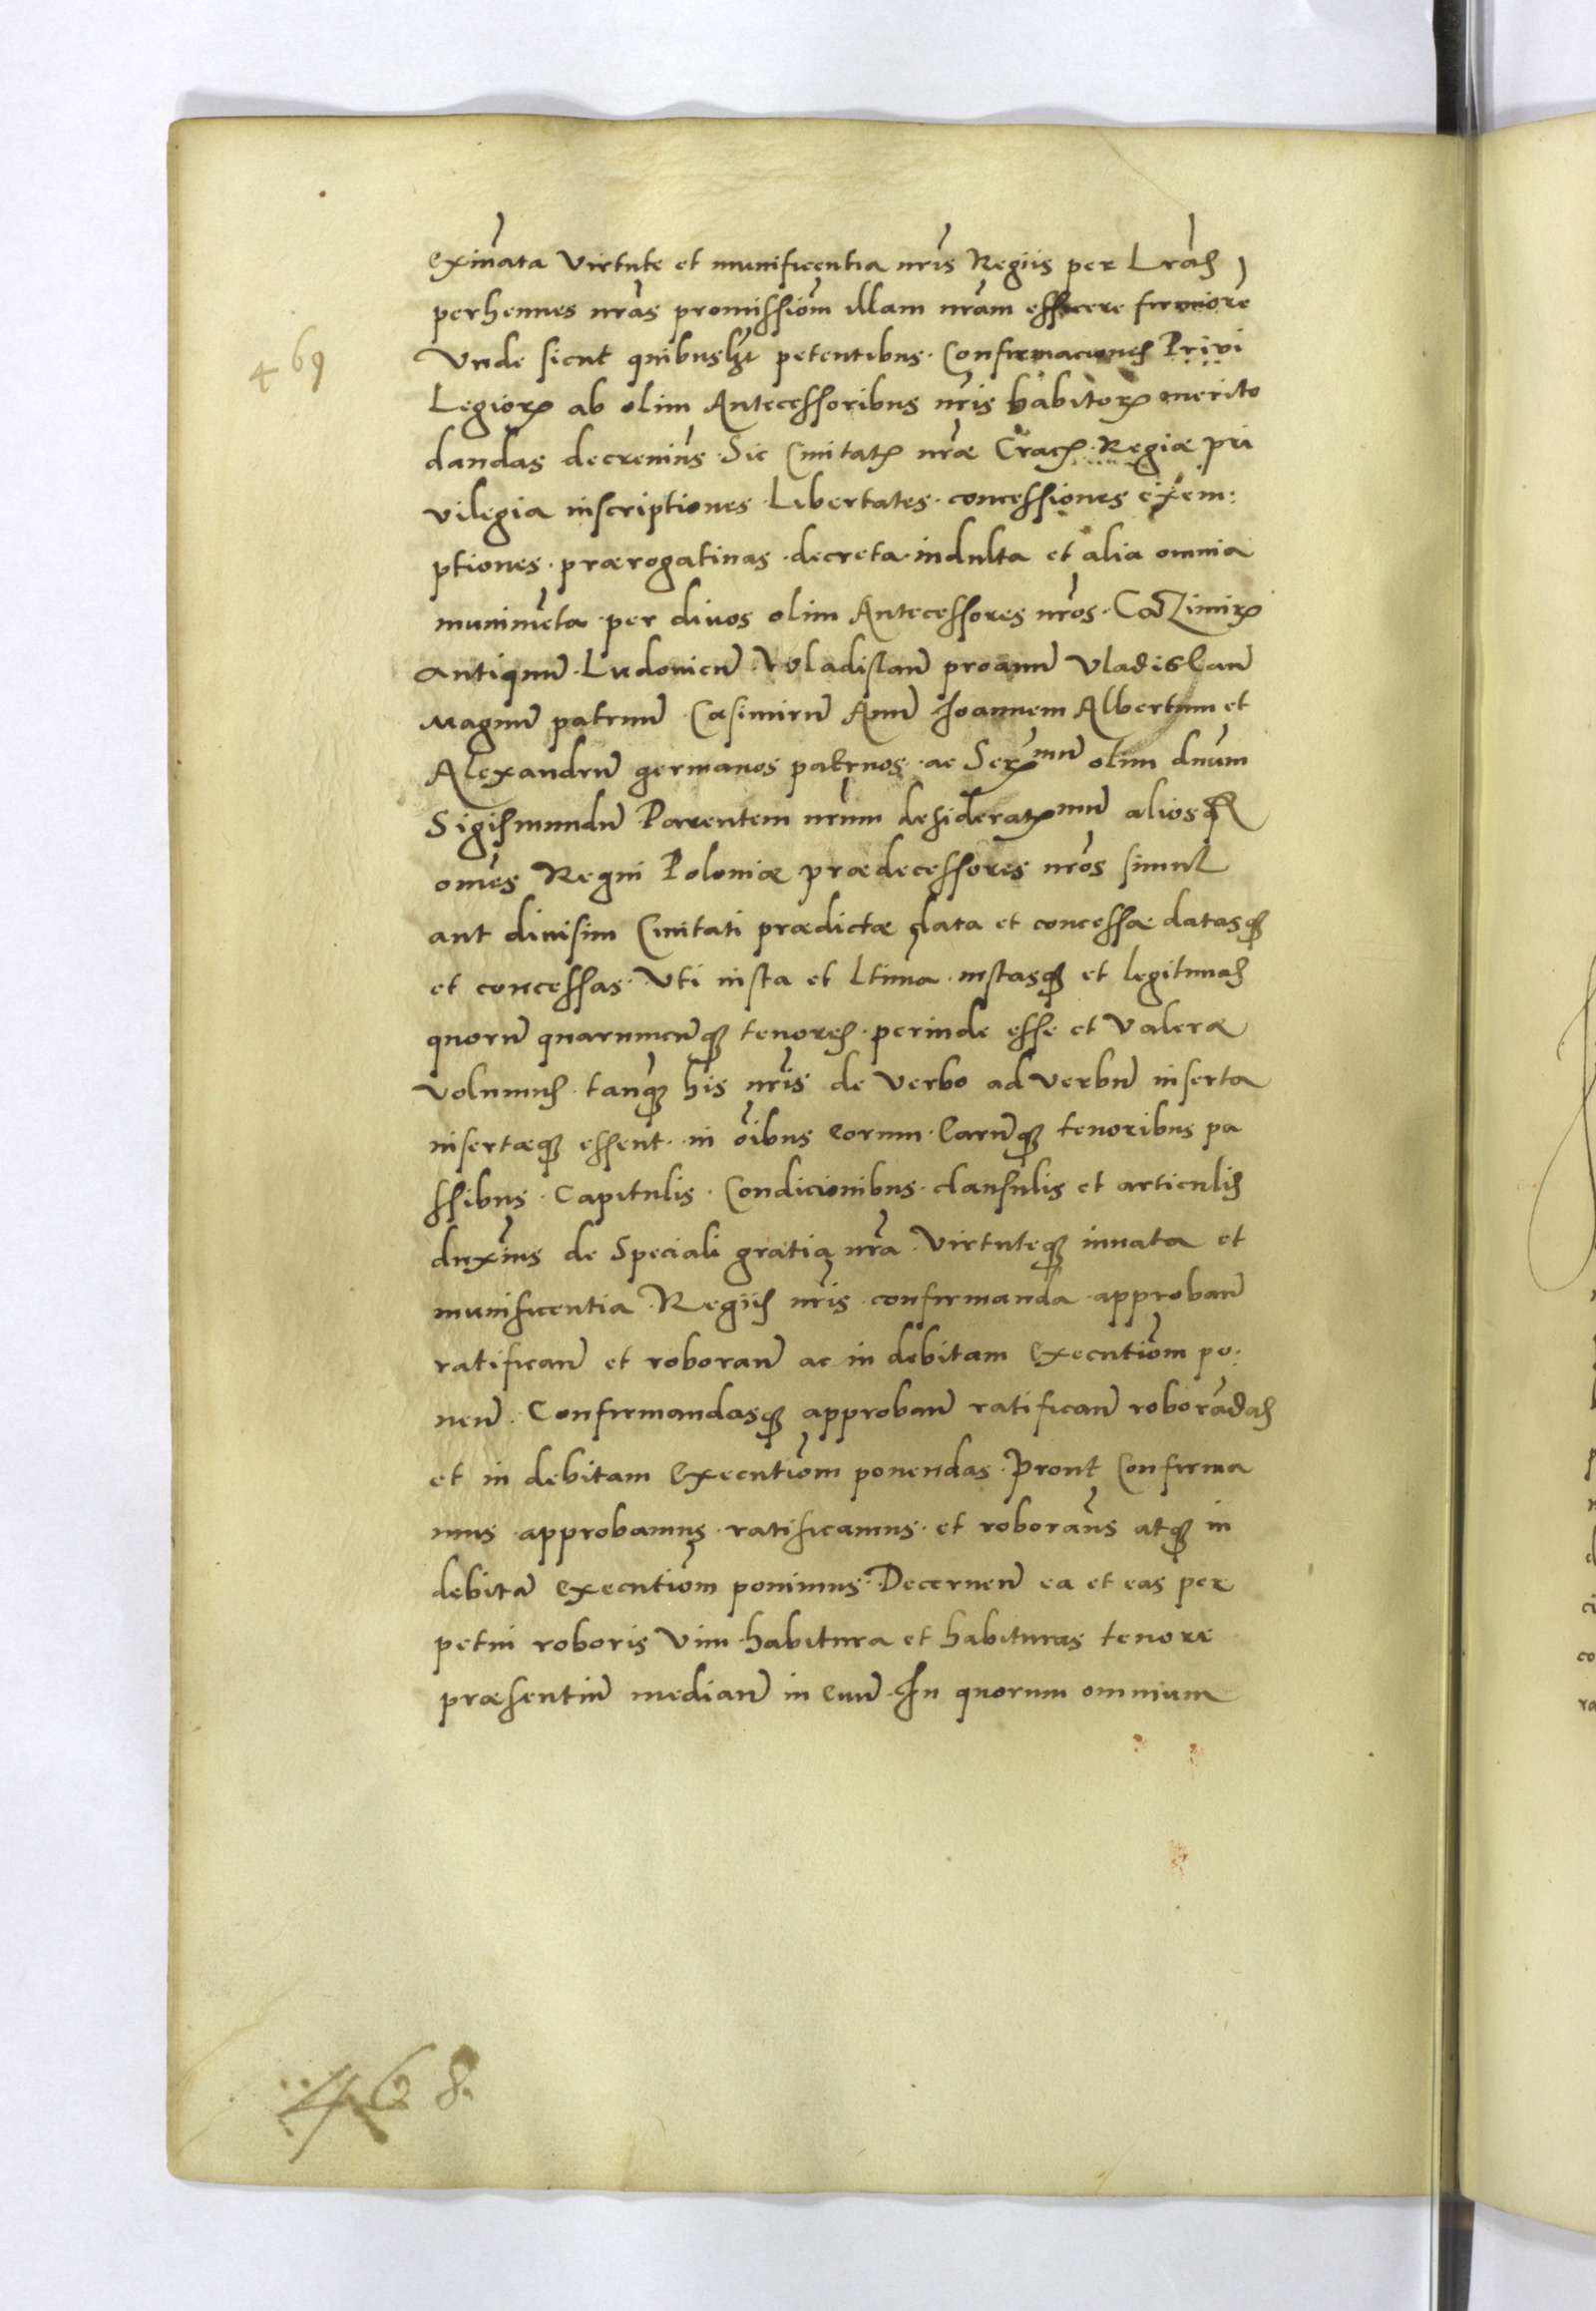 exinnata Virtute et munificentia nris Regiis per Lras
perhennes nras promissiom illam nram efficere firmiore
469
Vnde sicut quibuslt petentibus. Confirmaciones Privi
Legior ab olim Antecessoribus nris habitor merito
dandas decrevim̄s. Sic Civitat nræ Crac. Regiæ pri
vilegia inscriptiones. Libertates. concessiones exem:
ptiones. prærogativas. decreta. indulta et alia omnia
munimēta per divos olim Antecessores nros. Cazimir
antiquū. Ludovicū. Vladislaū proavū Vladislaū
Magnū patruū. Casimirū Avū Joannem Albertum et
Alexandrū germanos patruos. ac Ser mū olim dnum
Sigismundū Parentem nrum desiderat mū aliosq
omēs Regni Poloniæ prædecessores nros simul
aut divisim Civitati prædictæ data et concessa datasq
et concessas. Vti iusta et Ltima. iustasq et legitimas
quorū quarumcunq tenores. perinde esse et valere
volumus. tanq his nris de verbo ad verbū inserta
insertæq essent. in oibus eorum. Earūq tenoribus pa
ssibus. Capitulis. Condicionibus. clausulis et articulis
duxim̄s de Speciali gratia nra. Virtuteq innata et
munificentia. Regiis nris. confirmanda. approban̄
ratifican̄ et roboran̄ ac in debitam Executiom po:
nen̄. Confirmandasq approban̄ ratifican̄ roborādas
et in debitam Executiom ponendas. Prout Confirma
mus. approbamus. ratificamus. et roboram̄s atq in
debitā executiom ponimus. Decernen̄ ea et eas per
petui roboris Vim habitura et habituras tenore
præsentiū median̄ in Evū. In quorum omnium
468.